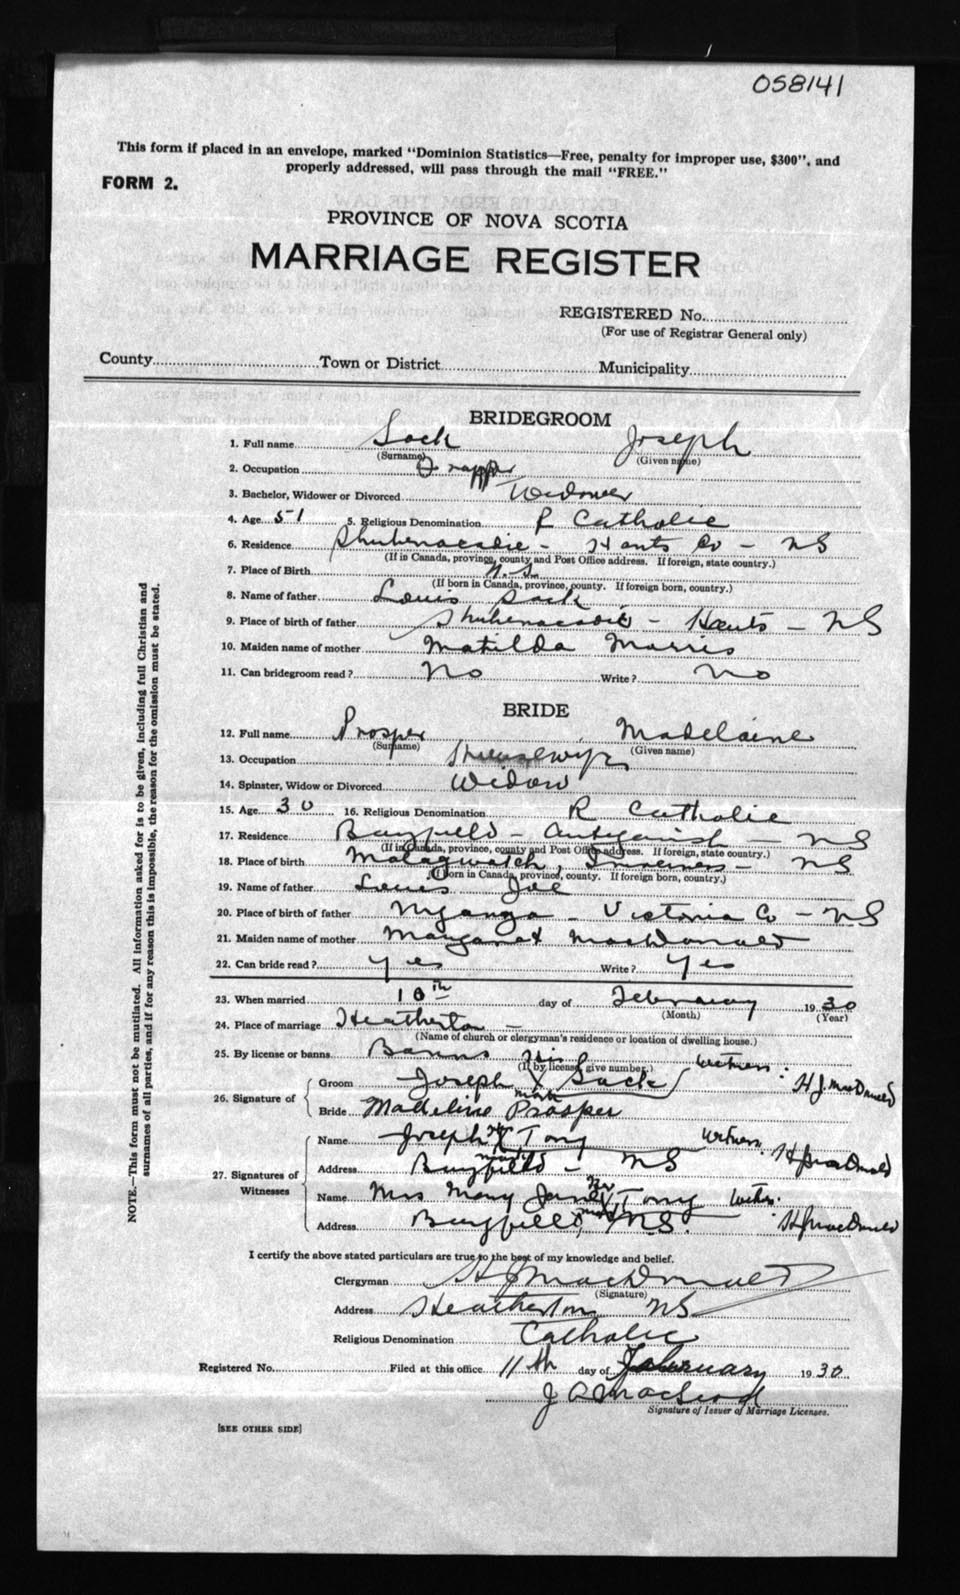 058141
This form if placed in an envelope, marked "Dominion Statistics—Free, penalty for improper use, $300", and
properly addressed, will pass through the mail "FREE."
FORM 2.
PROVINCE OF NOVA SCOTIA
MARRIAGE REGISTER
REGISTERED No.
(For use of Registrar General only)
County Town or District Municipality
BRIDEGROOM
1. Full name Sack Joseph
(Surname) (Given name)
2. Occupation Trapper
3. Bachelor, Widower or Divorced Widower
4. Age 51 5. Religious Denomination R Catholic
6. Residence Shubenacadie - Hants Co - NS
(If in Canada, province, county and Post Office address. If foreign, state country.)
7. Place of Birth N.S.
(If born in Canada, province, county. If foreign born, country.)
8. Name of father Louis Sack
9. Place of birth of father Shubenacadie - Hants - NS
10. Maiden name of mother Matilda Morris
11. Can bridegroom read? No Write? No
BRIDE
12. Full name Prosper Madelaine
(Surname) (Given name)
13. Occupation
14. Spinster, Widow or Divorced Widow
15. Age 30 16. Religious Denomination R Catholic
17. Residence Bayfield - Antigonish - NS
(If in Canada, province, county and Post Office address. If foreign, state country.)
18. Place of birth Malagwatch, Inverness - NS
(If born in Canada, province, county. If foreign born, country.)
19. Name of father Louis Joe
20. Place of birth of father Nyanga - Victoria Co - NS
21. Maiden name of mother Margaret MacDonald
22. Can bride read? Yes Write? Yes
23. When married 10th day of February 1930
(Month) (Year)
24. Place of marriage Heatherton -
(Name of church or clergyman's residence or location of dwelling house.)
25. By license or banns Banns
(If by license, give number.)
26. Signature of
Groom Joseph his X mark Sack Witness: H J MacDonald
Bride Madeline Prosper
27. Signatures of Witnesses
Name Joseph X Tony Witness. H J MacDonald
Address Bayfield - NS
Name Mrs Mary Jane her X mark Tony Witn. H J MacDonald
Address Bayfield, NS.
I certify the above stated particulars are true to the best of my knowledge and belief.
Clergyman H J MacDonald
(Signature)
Address Heatherton NS
Religious Denomination Catholic
Registered No. Filed at this office 11th day of February 1930
J A MacLeod
Signature of Issuer of Marriage Licenses.
[SEE OTHER SIDE]
NOTE.—This form must not be mutilated. All information asked for is to be given, including full Christian and
surnames of all parties, and if for any reason this is impossible, the reason for the omission must be stated.